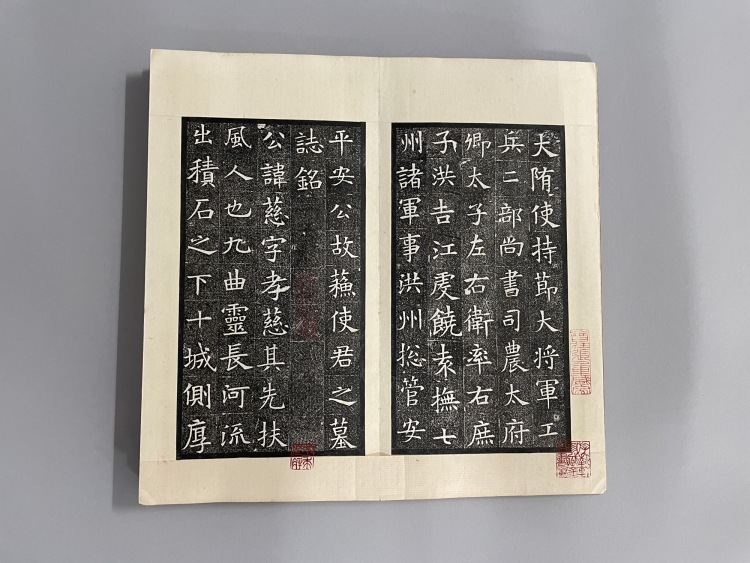 大隋使持節大將軍工
兵二部尚書司農太府
卿太子左右衛率右庶
子洪吉江虔饒袁撫七
州諸軍事洪州捴管安
平安公故蘓使君之墓
誌銘
公諱慈字孝慈其先扶
風人也九曲靈長河流
出積石之下十城側厚